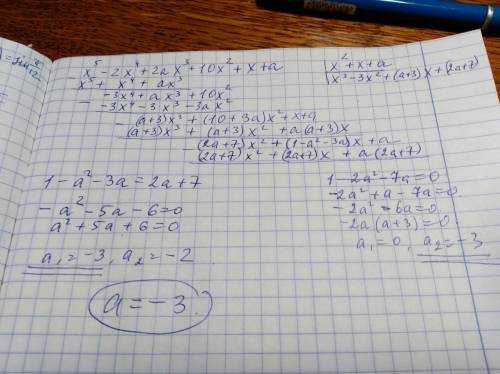 x⁵ - 2x⁴ + 2ax³ + 10x² + x + a | x² + x + a
x⁵ + x⁴ + ax³ | x³ - 3x² + (a+3)x + (2a+7)
-3x⁴ + ax³ + 10x²
-3x⁴ - 3x³ - 3ax²
(a+3)x³ + (10+3a)x² + x + a
(a+3)x³ + (a+3)x² + a(a+3)x
(2a+7)x² + (1-a²-3a)x + a
(2a+7)x² + (2a+7)x + a(2a+7)
1 - a² - 3a = 2a + 7
- a² - 5a - 6 = 0
a² + 5a + 6 = 0
a₁ = -3, a₂ = -2
a = -3.
-2a² + a - 7a = 0
-2a² - 6a = 0
-2a(a+3) = 0
a₁ = 0, a₂ = -3